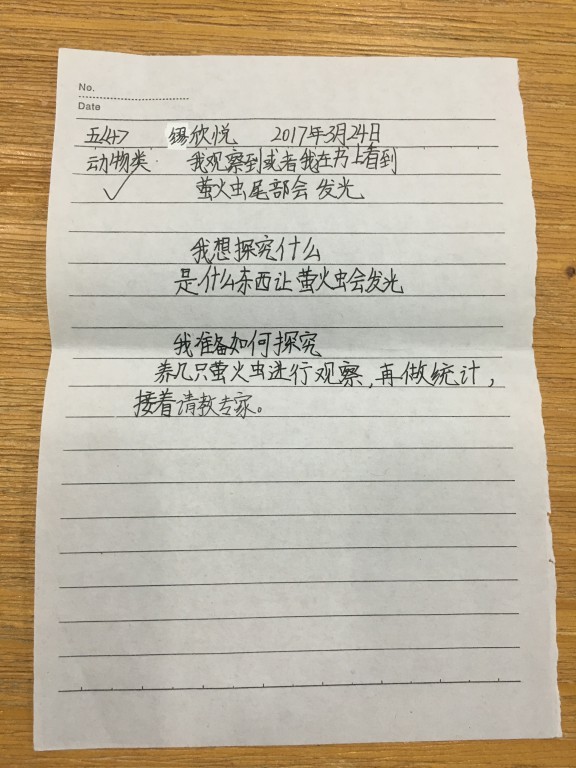 No.
Date
五(4) 缪欣悦 2017年3月24日
动物类 我观察到或者我在书上看到
萤火虫尾部会发光
我想探究什么
是什么东西让萤火虫会发光
我准备如何探究
养几只萤火虫进行观察,再做统计,
接着请教专家。